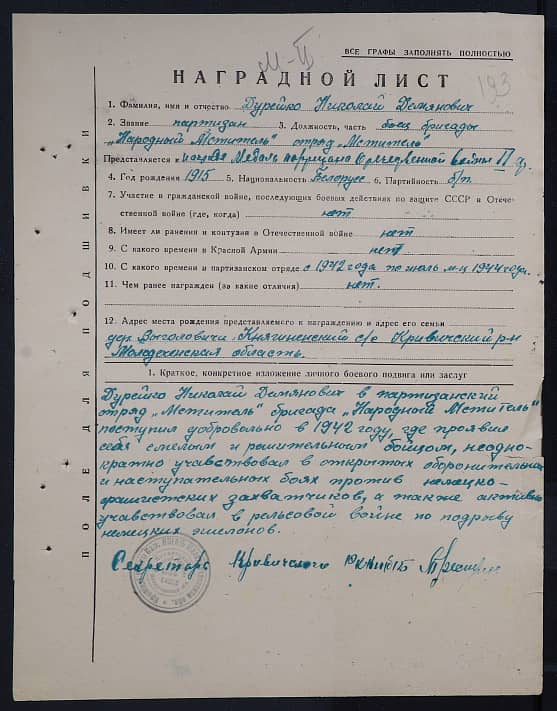 М-II
ВСЕ ГРАФЫ ЗАПОЛНЯТЬ ПОЛНОСТЬЮ
193
НАГРАДНОЙ ЛИСТ
1. Фамилия, имя и отчество Дурейко Николай Демянович
2. Звание партизан 3. Должность, часть боец бригады
"Народный Мститель" отряд "Мститель"
Представляется к награде Медаль партизана Отечественной войны II ст.
4. Год рождения 1915 5. Национальность Белорус 6. Партийность б/п.
7. Участие в гражданской войне, последующих боевых действиях по защите СССР и Отече-
ственной войне (где, когда) нет
8. Имеет ли ранения и контузии в Отечественной войне нет
9. С какого времени в Красной Армии нет
10. С какого времени в партизанском отряде с 1942 года по июль м-ц 1944 года.
11. Чем ранее награжден (за какие отличия) нет.
12. Адрес места рождения представляемого к награждению и адрес его семьи
дер. Выголовичи Княгининский с/с Кривичский р-н
Молодеченская область.
1. Краткое, конкретное изложение личного боевого подвига или заслуг
Дурейко Николай Демянович в партизанский
отряд "Мститель" бригада "Народный Мститель"
поступил добровольно в 1942 году, где проявил
себя смелым и решительным бойцом, неодно-
кратно учавствовал в открытых оборонительных
и наступательных боях против немецко-
фашистских захватчиков, а также активно
учавствовал в рельсовой войне по подрыву
немецких эшелонов.
Секретарь Кривичского РК КП(б)Б
ПОЛЕ ДЛЯ ПОДШИВКИ